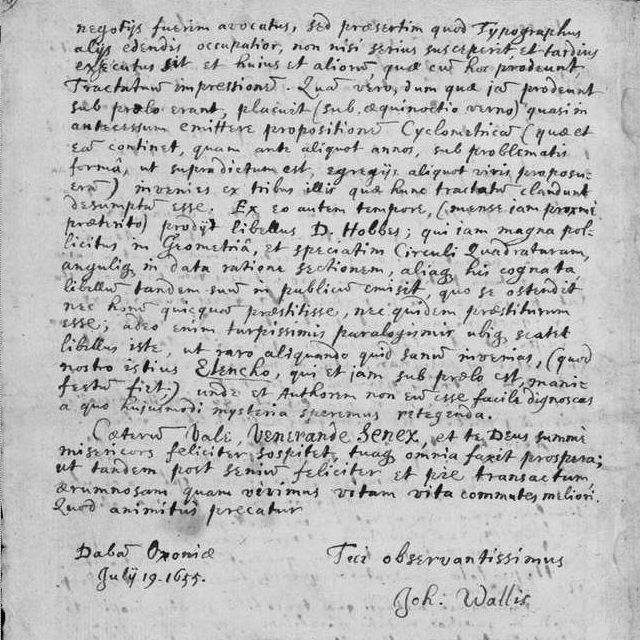 negotijs fuerim avocatus, sed præsertim quod Typographus
alijs edendis occupatior, non nisi serius susceperit et tardius
executus sit et huius et aliorū quæ cū hoc prodeunt,
Tractatuum impressionē. Quā vero, dum quæ jā prodeunt
sub prælo erant, placuit (sub æquinoctio verno) quasi in
antecessum emittere propositionē Cyclometricā (quæ et
eā continet, quam ante aliquot annos, sub problematis
formâ, ut supradictum est, egregijs aliquot viris proposu-
erā) invenies ex tribus illis quæ hunc tractatū claudunt
desumptū esse. Ex eo autem tempore, (mense jam proximè
præterito) prodijt libellus D. Hobbes; qui jam magna pol-
licitus in Geometriâ, et speciatim Circuli Quadraturam,
anguliq; in data ratione sectionem, aliaq; his cognata,
libellū tandem suū in publicū emisit, quo se ostendit
nec honū quicquā præstitisse, nec quidem præstiturum
esse; adeo enim turpissimis paralogismis ubiq; scatet
libellus iste, ut raro aliquando quid sanū invenias, (quod
nostro istius Elencho, qui et jam sub prælo est, manife-
festum fiet,) unde et Authorem non eū esse facile dignoscas
a quo hujusmodi mysteria speremus retegenda.
Cæterū Vale, Venerande Senex, et te Deus summè
misericors feliciter sospitet, tuaq; omnia faxit prospera;
ut tandem post seniū feliciter et piè transactum
ærumnosam quam vivimus vitam vita commutes meliori.
Quod animitus precatur
Dabā Oxoniæ
Julij 19. 1655.
Tui observantissimus
Joh: Wallis